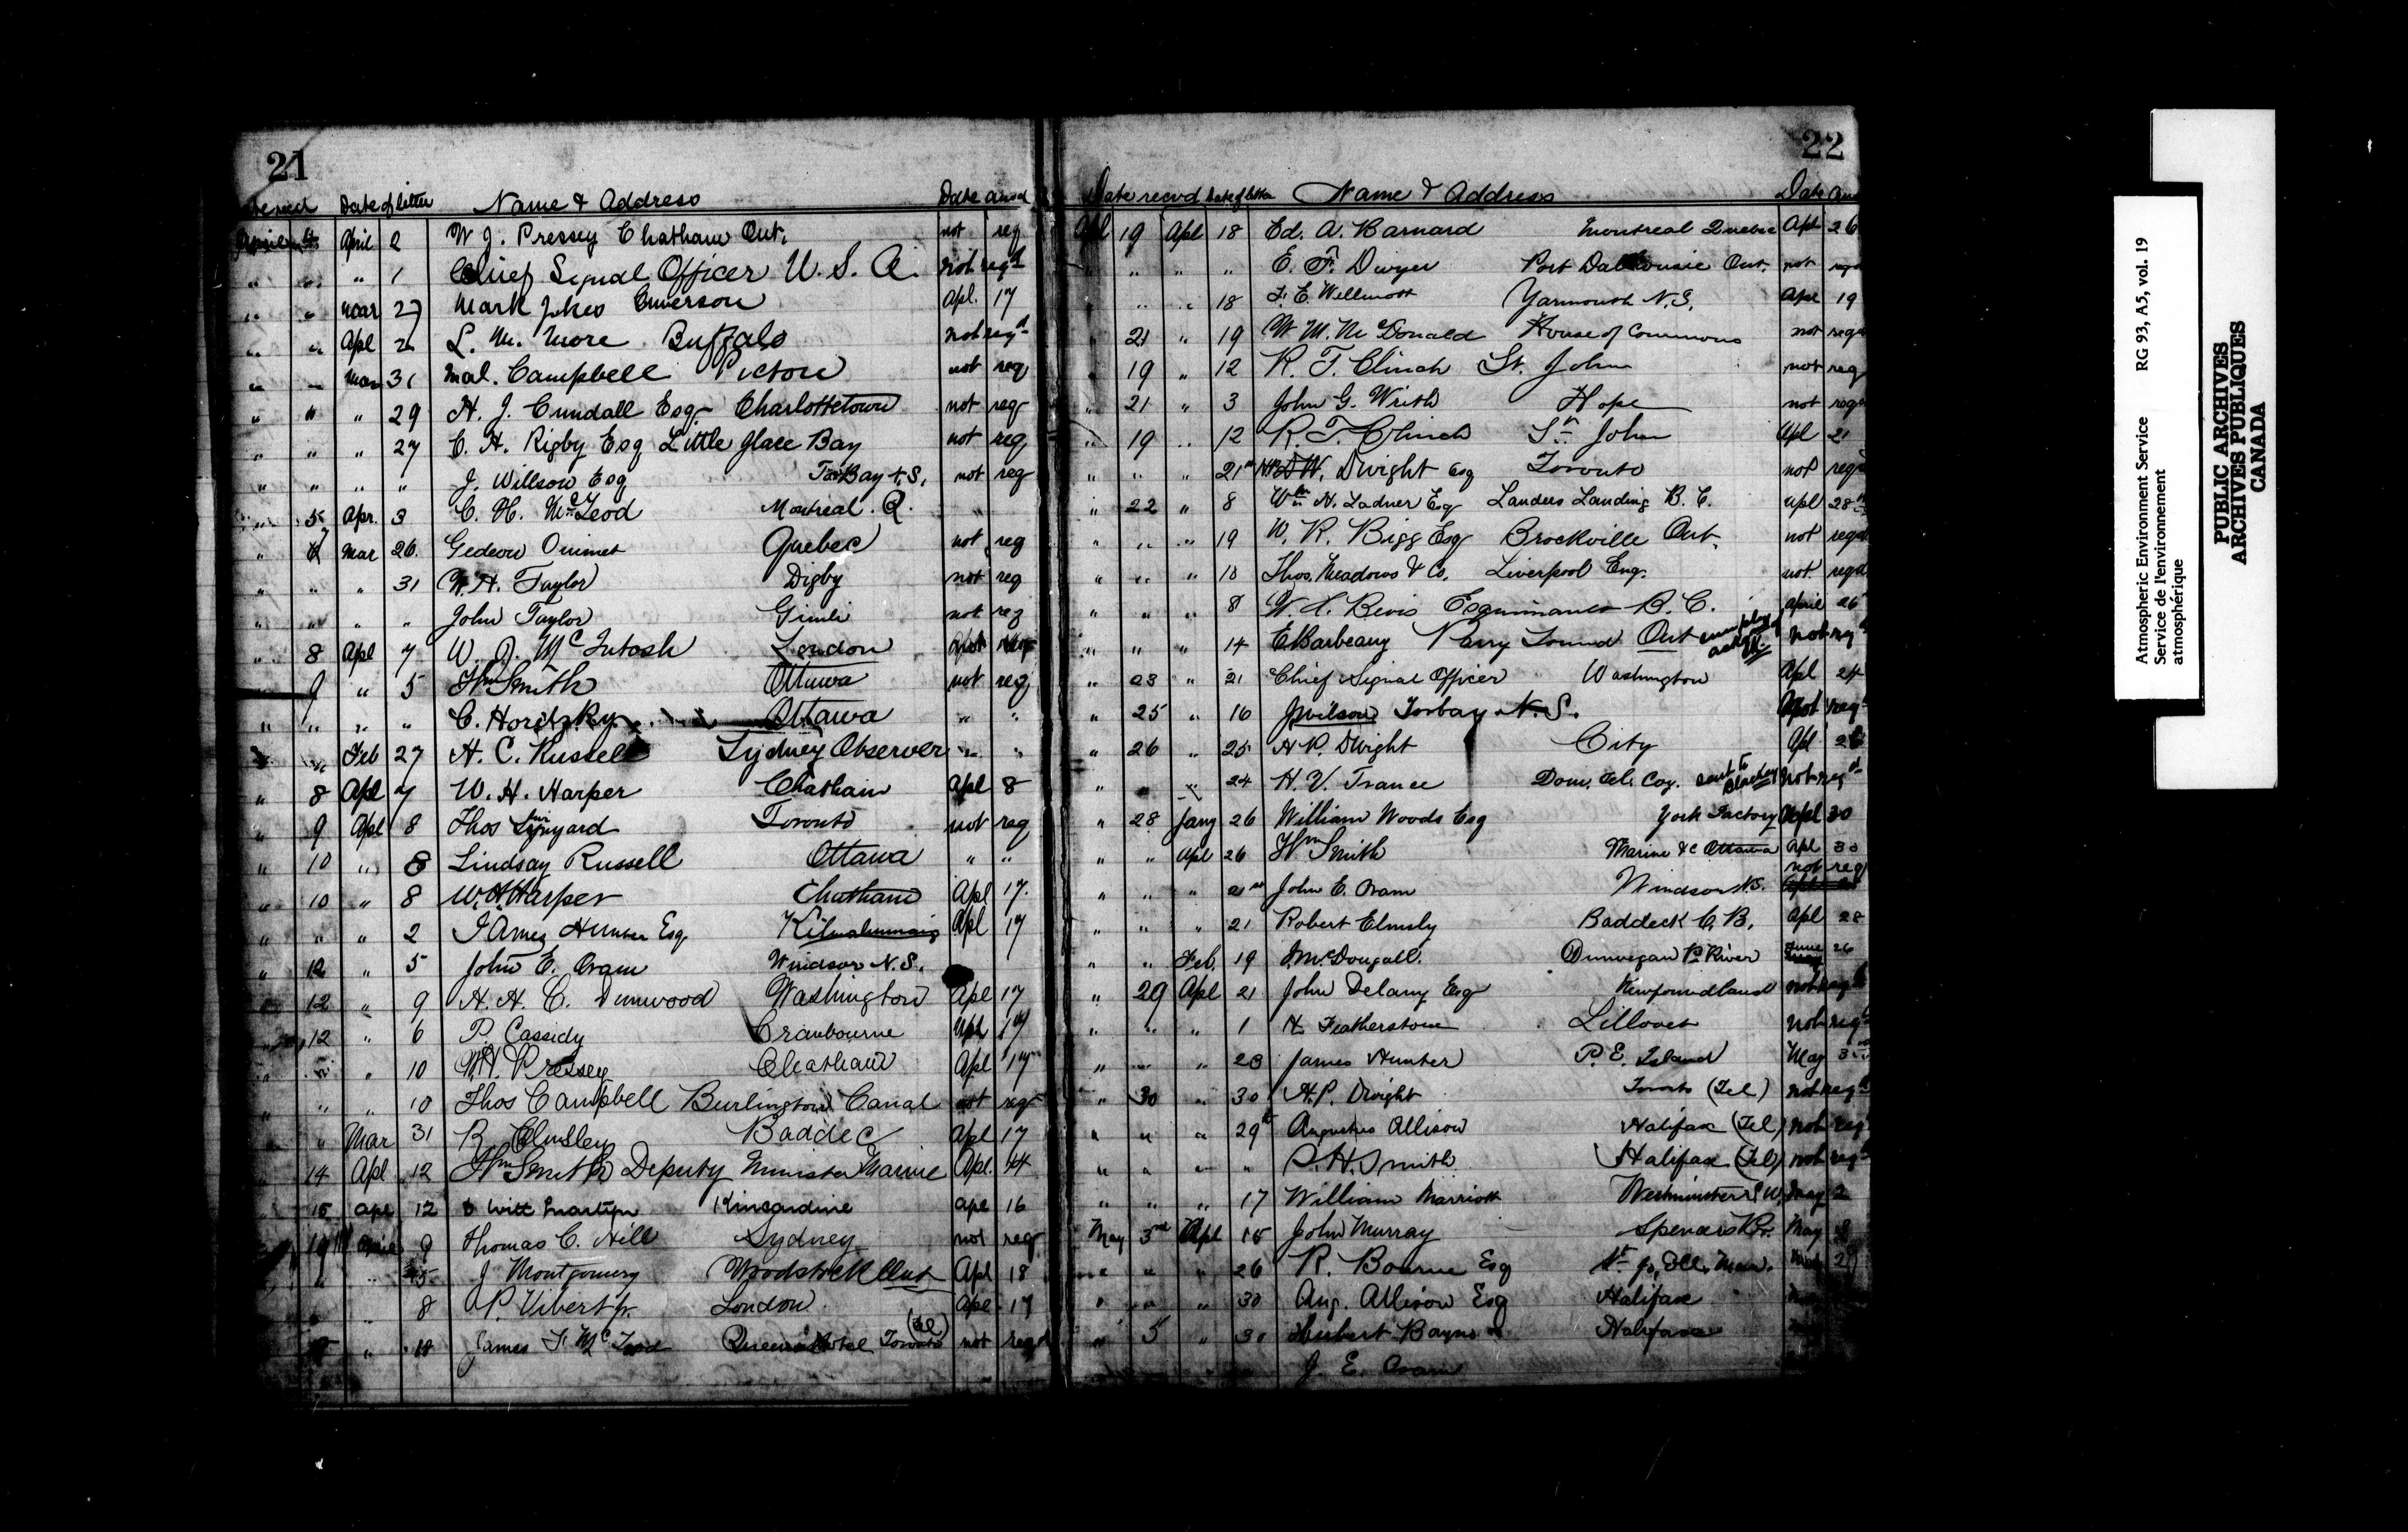 21
Date of letter Name & Address Date ansd
April 2 W J. Pressey Chatham Ont. not req
" " " 1 Chief Signal Officer U. S. A. not reqd
" " Mar 27 Mark Jukes Emerson Apl. 17
" " Apl 2 L. M. More Buffalo not reqd
" " Mar 31 Mal. Campbell Pictou not req
" " " 29 H. J. Cundall Esq Charlottetown not req
" " " 27 C. H. Rigby Esq Little Glace Bay not req
" " " " J. Willson Esq TorBay N.S. not req
" 5 Apr. 3 C. H. McLeod Montreal. Q.
" Mar 26. Gedeon Ouimet Quebec not req
" " " 31 W. H. Taylor Digby not req
" " " " John Taylor Gimli not req
" 8 Apl 7 W. D. McIntosh London
9 " 5 Wm Smith Ottawa not req
" " " " C. Horetzky Ottawa " "
" " Feb 27 H. C. Russell Sydney Observer " "
" 8 Apl 7 W. H. Harper Chatham Apl 8
" 9 Apl 8 Thos Toronto not req
" 10 " 8 Lindsay Russell Ottawa " "
" 10 " 8 W.H. Harper Chatham Apl 17.
" " " 2 James Hunter Esq. Apl 17
" 12 " 5 John E. Oram Windsor N.S.
" 12 " 9 H. H. C. Dunwood Washington Apl 17
" 12 " 6 P. Cassidy Cranbourne Apl 17
" " " 10 W.H. Pressey Chatham Apl 17
" " " 10 Thos Campbell Burlington Canal not req
" Mar 31 R Elmsley Baddec Apl 17
14 Apl 12 Wm Smith Deputy Minister Marine Apl. 14
15 apl 12 Witt Martyn Kincardine apl 16
19 April 9 Thomas C. Hill Sydney not req
" J Montgomery Woodstock Ont Apl 18
" 8 P. Vibert jr. London Apl 17
" James Queens Hotel Toronto (Tel) not reqd
22
Date recvd Date of letter Name & Address Date Ans
Apl 19 Apl 18 Ed. A. Barnard Montreal Quebec Apl 26
" " " " E. F. Dwyer Port Dalhousie Ont. not reqd
" " 18 F. E. Wellmott Yarmouth N.S. Apl 19
21 " 19 W. M. McDonald House of Commons not reqd
19 " 12 R. T. Clinch St. John not req
" 21 " 3 John G. Wirth Hope not reqd
" 19 " 12 R. T. Clinch St. John Apl 21
" " " 21st W. Dwight Esq Toronto not reqd
" 22 " 8 Wm H. Ladner Esq Landers Landing B. C. Apl 28th
" " " 19 W. R. Bigg Esq Brockville Ont. not reqd
" " " 10 Thos. Meadows & Co. Liverpool Eng. not reqd
" " " 8 Bevis Esquimault B. C. April 26
" " " 14 E Barbeauy Parry Sound Ont not reqd
" 23 " 21 Chief Signal Officer Washington Apl 24
" 25 " 16 J Wilson Torbay N. S. not reqd
" 26 " 25 H P. Dwight City Apl 26
" " " 24 H. V. France Dom. Tel. Coy. sent to not reqd
" 28 Jany 26 William Woods Esq York Factory Apl 30
" " Apl 26 Wm Smith Marine &c Ottawa Apl 30
" " " 21st John E. Oram Windsor N.S. not req
" " " 21 Robert Elmsly Baddeck C. B. Apl 28
" " Feb. 19 J. McDougall. Dunvegan Pe River June 26
" 29 Apl 21 John Delany Esq Newfoundland not reqd
" " " 1 H. Featherstone Lillooet not reqd
" " " 23 James Hunter P. E. Island May 3
" 30 " 30 H. P. Dwight Toronto (Tel) not reqd
" " " 29th Augustus Allison Halifax (Tel) not reqd
" " " " P. H. Smith Halifax (Tel) not reqd
" " " 17 William Marriott Westminster S W. May 2
May 3rd Apl 15 John Murray Spences Br. May
" " " 26 R. Bourne Esq
" " " 30 Aug. Allison Esq Halifax
" 5 " 30 Herbert Bayne Halifax
J. E. Oram
Atmospheric Environment Service RG 93, A5, vol. 19
Service de l'environnement
atmosphérique
PUBLIC ARCHIVES
ARCHIVES PUBLIQUES
CANADA